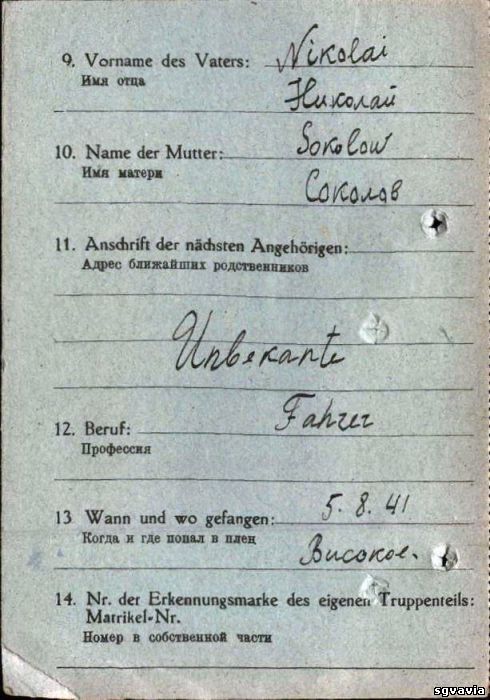 9. Vorname des Vaters: Nikolai
Имя отца
Николай
10. Name der Mutter: Sokolow
Имя матери
Соколов
11. Anschrift der nächsten Angehörigen:
Адрес ближайших родственников
Unbekante
12. Beruf: Fahrer
Профессия
13 Wann und wo gefangen: 5. 8. 41
Когда и где попал в плен
Високое.
14. Nr. der Erkennungsmarke des eigenen Truppenteils:
Matrikel-Nr.
Номер в собственной части
sgvavia